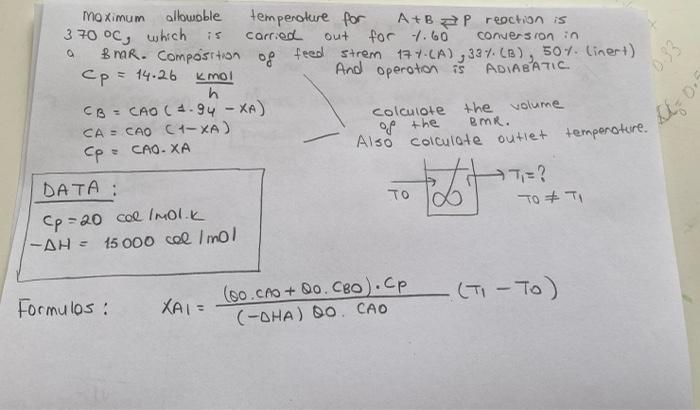 Maximum allowable temperature for A+B ⇄ P reaction is
370 °C, which is carried out for %60 conversion in
a BMR. Composition of feed strem 17%(A), 33%(B), 50% (inert)
Cp = 14.26 kmol/h And operation is ADIABATIC
CB = CAO (1.94 - XA)
CA = CAO (1-XA)
Cp = CAO. XA
calculate the volume
of the BMR.
Also calculate outlet temperature.
DATA :
Cp = 20 cal /mol.k
-ΔH = 15000 cal /mol
TO
T1 = ?
TO ≠ T1
Formulas : XA1 = (Q0.CAO + Q0.CBO).Cp / (-ΔHA) Q0. CAO (T1 - To)